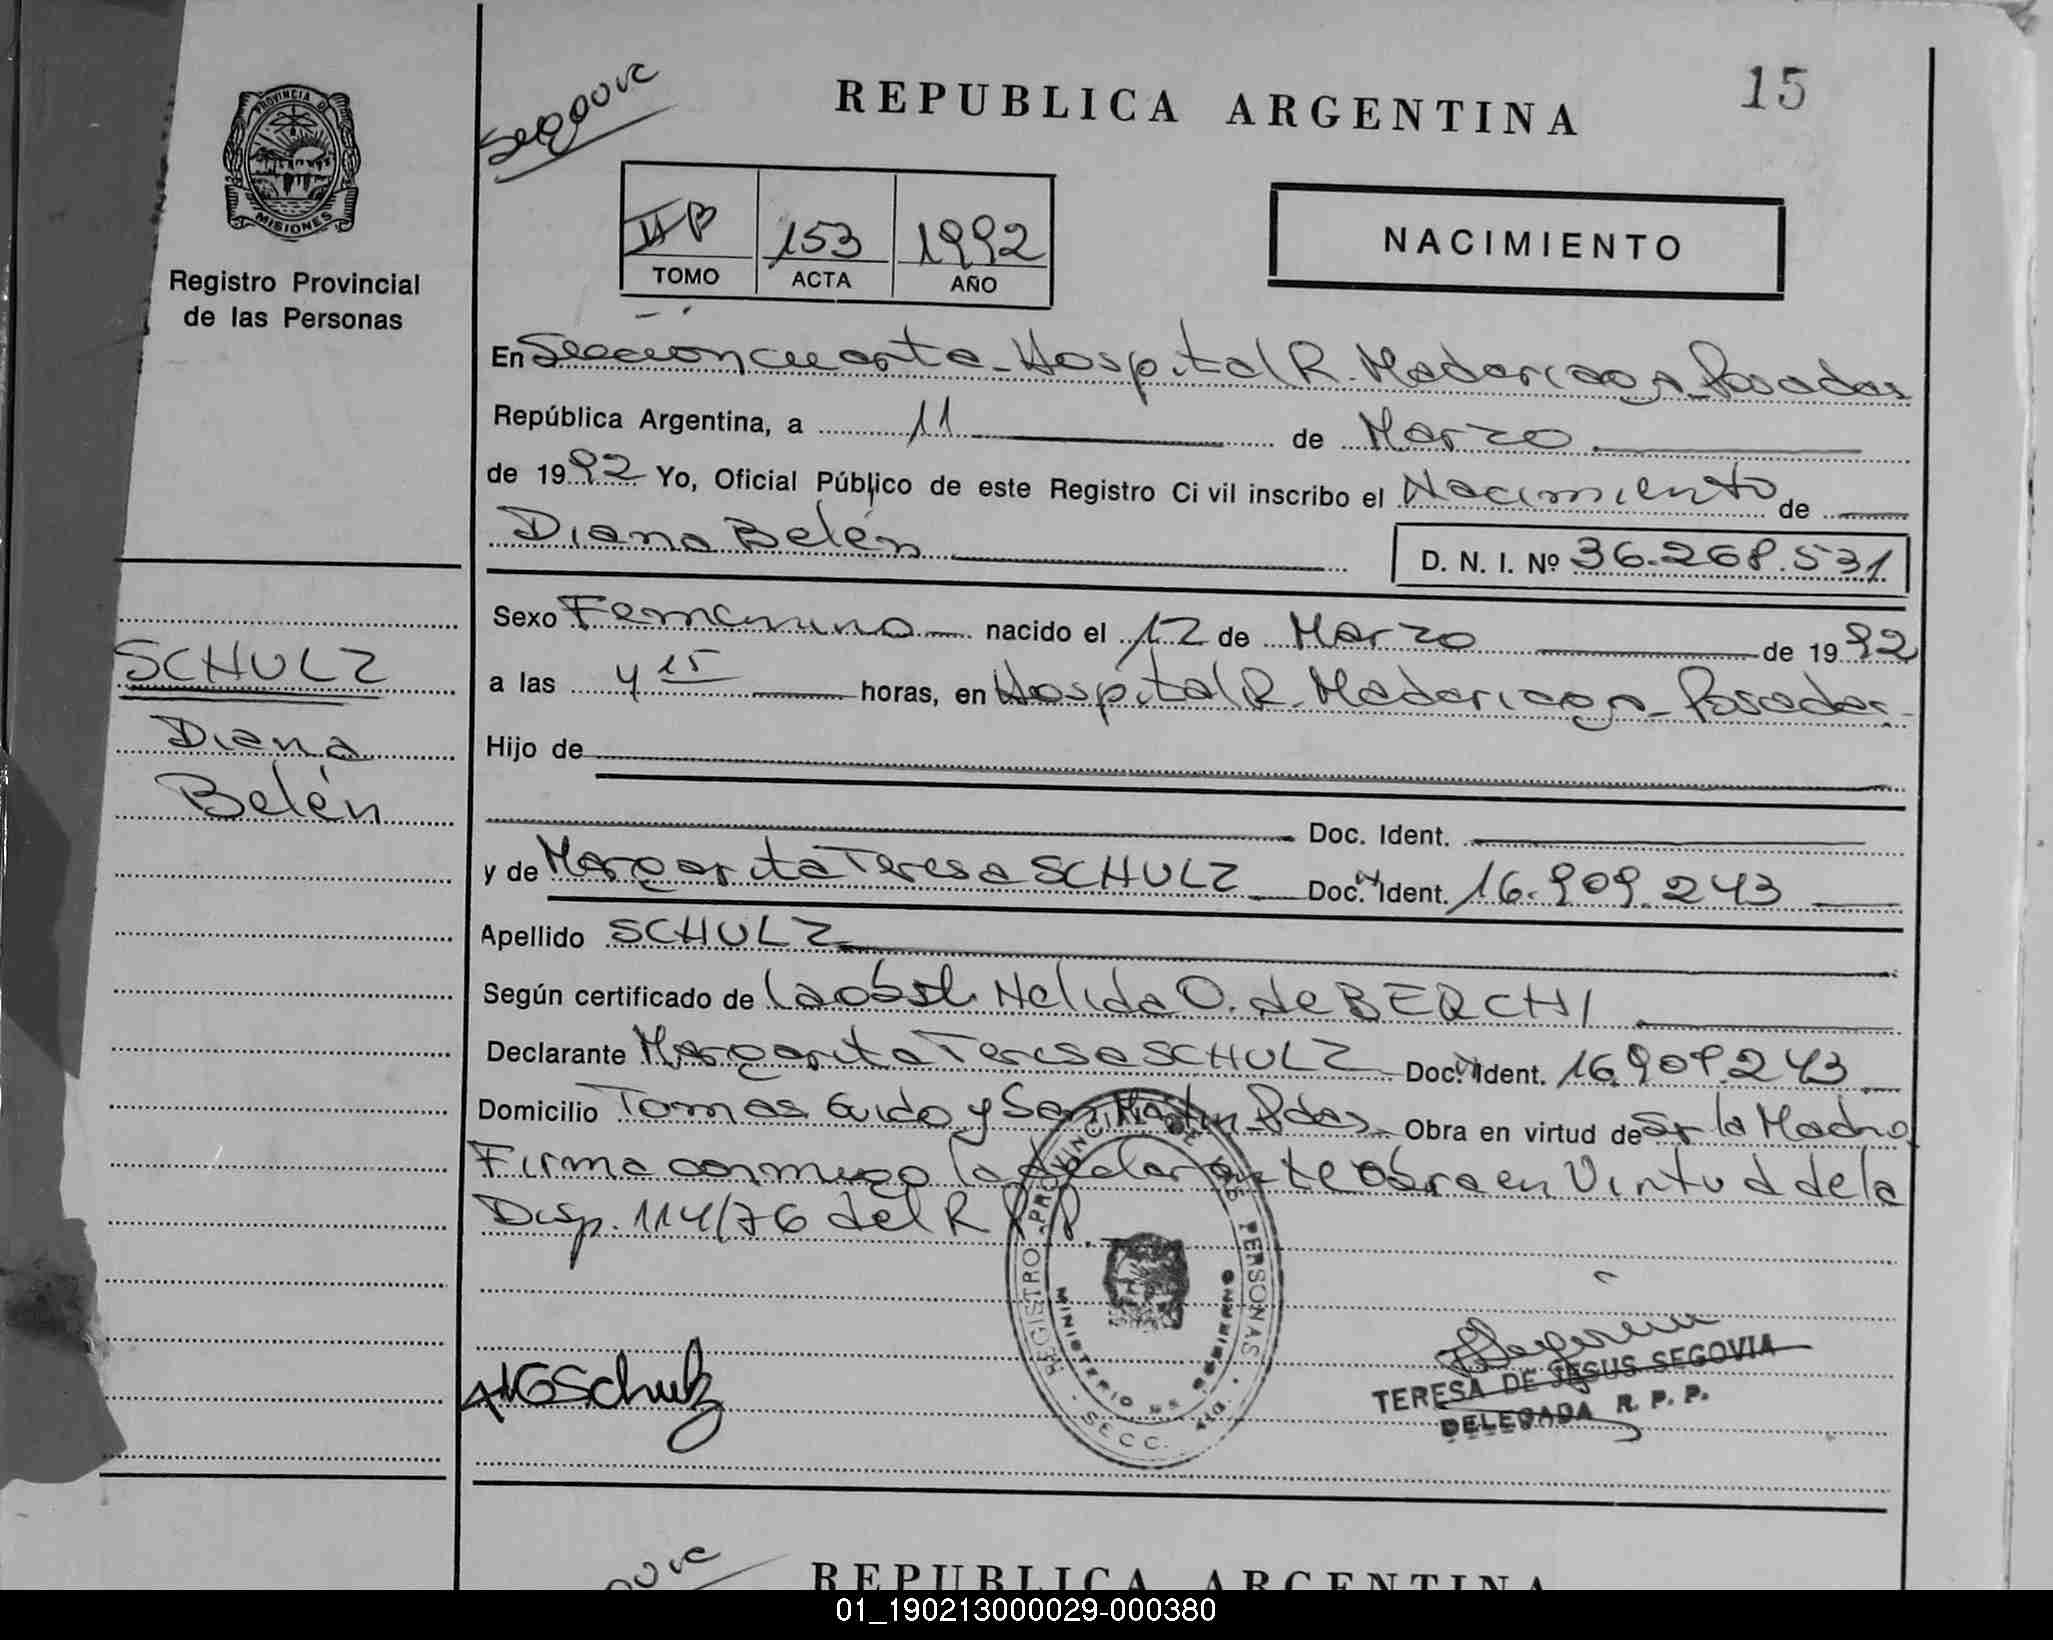 Segovia
REPUBLICA ARGENTINA
15
PROVINCIA DE
MISIONES
Registro Provincial
de las Personas
II B 153 1992
TOMO ACTA AÑO
NACIMIENTO
En Seccion cuarta - Hospital R. Madariaga - Posadas
República Argentina, a 11 de Marzo
de 1992 Yo, Oficial Público de este Registro Civil inscribo el Nacimiento de
Diana Belén D. N. I. Nº 36.268.531
Sexo Femenino nacido el 12 de Marzo de 1992
a las 4 15 horas, en Hospital R. Madariaga - Posadas -
Hijo de
Doc. Ident.
y de Margarita Teresa SCHULZ Doc. Ident. 16.909.243
Apellido SCHULZ
Según certificado de la obst. Nelida O. de BERCHI
Declarante Margarita Teresa SCHULZ Doc. Ident. 16.909.243
Domicilio Tomas Guido y San Martin - Pdas - Obra en virtud de Sr la Madre
Firma conmigo la declarante obra en Virtud de la
Disp. 114/76 del R.P.P.
SCHULZ
Diana
Belén
REGISTRO PROVINCIAL DE LAS PERSONAS
MINISTERIO DE GOBIERNO
SECC. 4ta.
Schulz
TERESA DE JESUS SEGOVIA
DELEGADA R. P. P.
REPUBLICA ARGENTINA
01_190213000029-000380